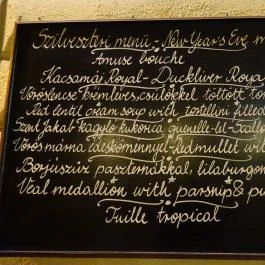 Szilveszteri menü - New Year's Eve m
Amuse bouche
Kacsamáj Royal - Duckliver Roya
Vöröslencse krémleves, csülökkel töltött to
Red lentil cream soup with tortellini filled
Szent Jakab kagyló kukorica quenelle-lel - Scallo
Vörös márna édesköménnyel - Redmullet wit
Borjúszűz paszternákkal, lilaburgon
Veal medallion with parsnip & pu
Tuille tropical